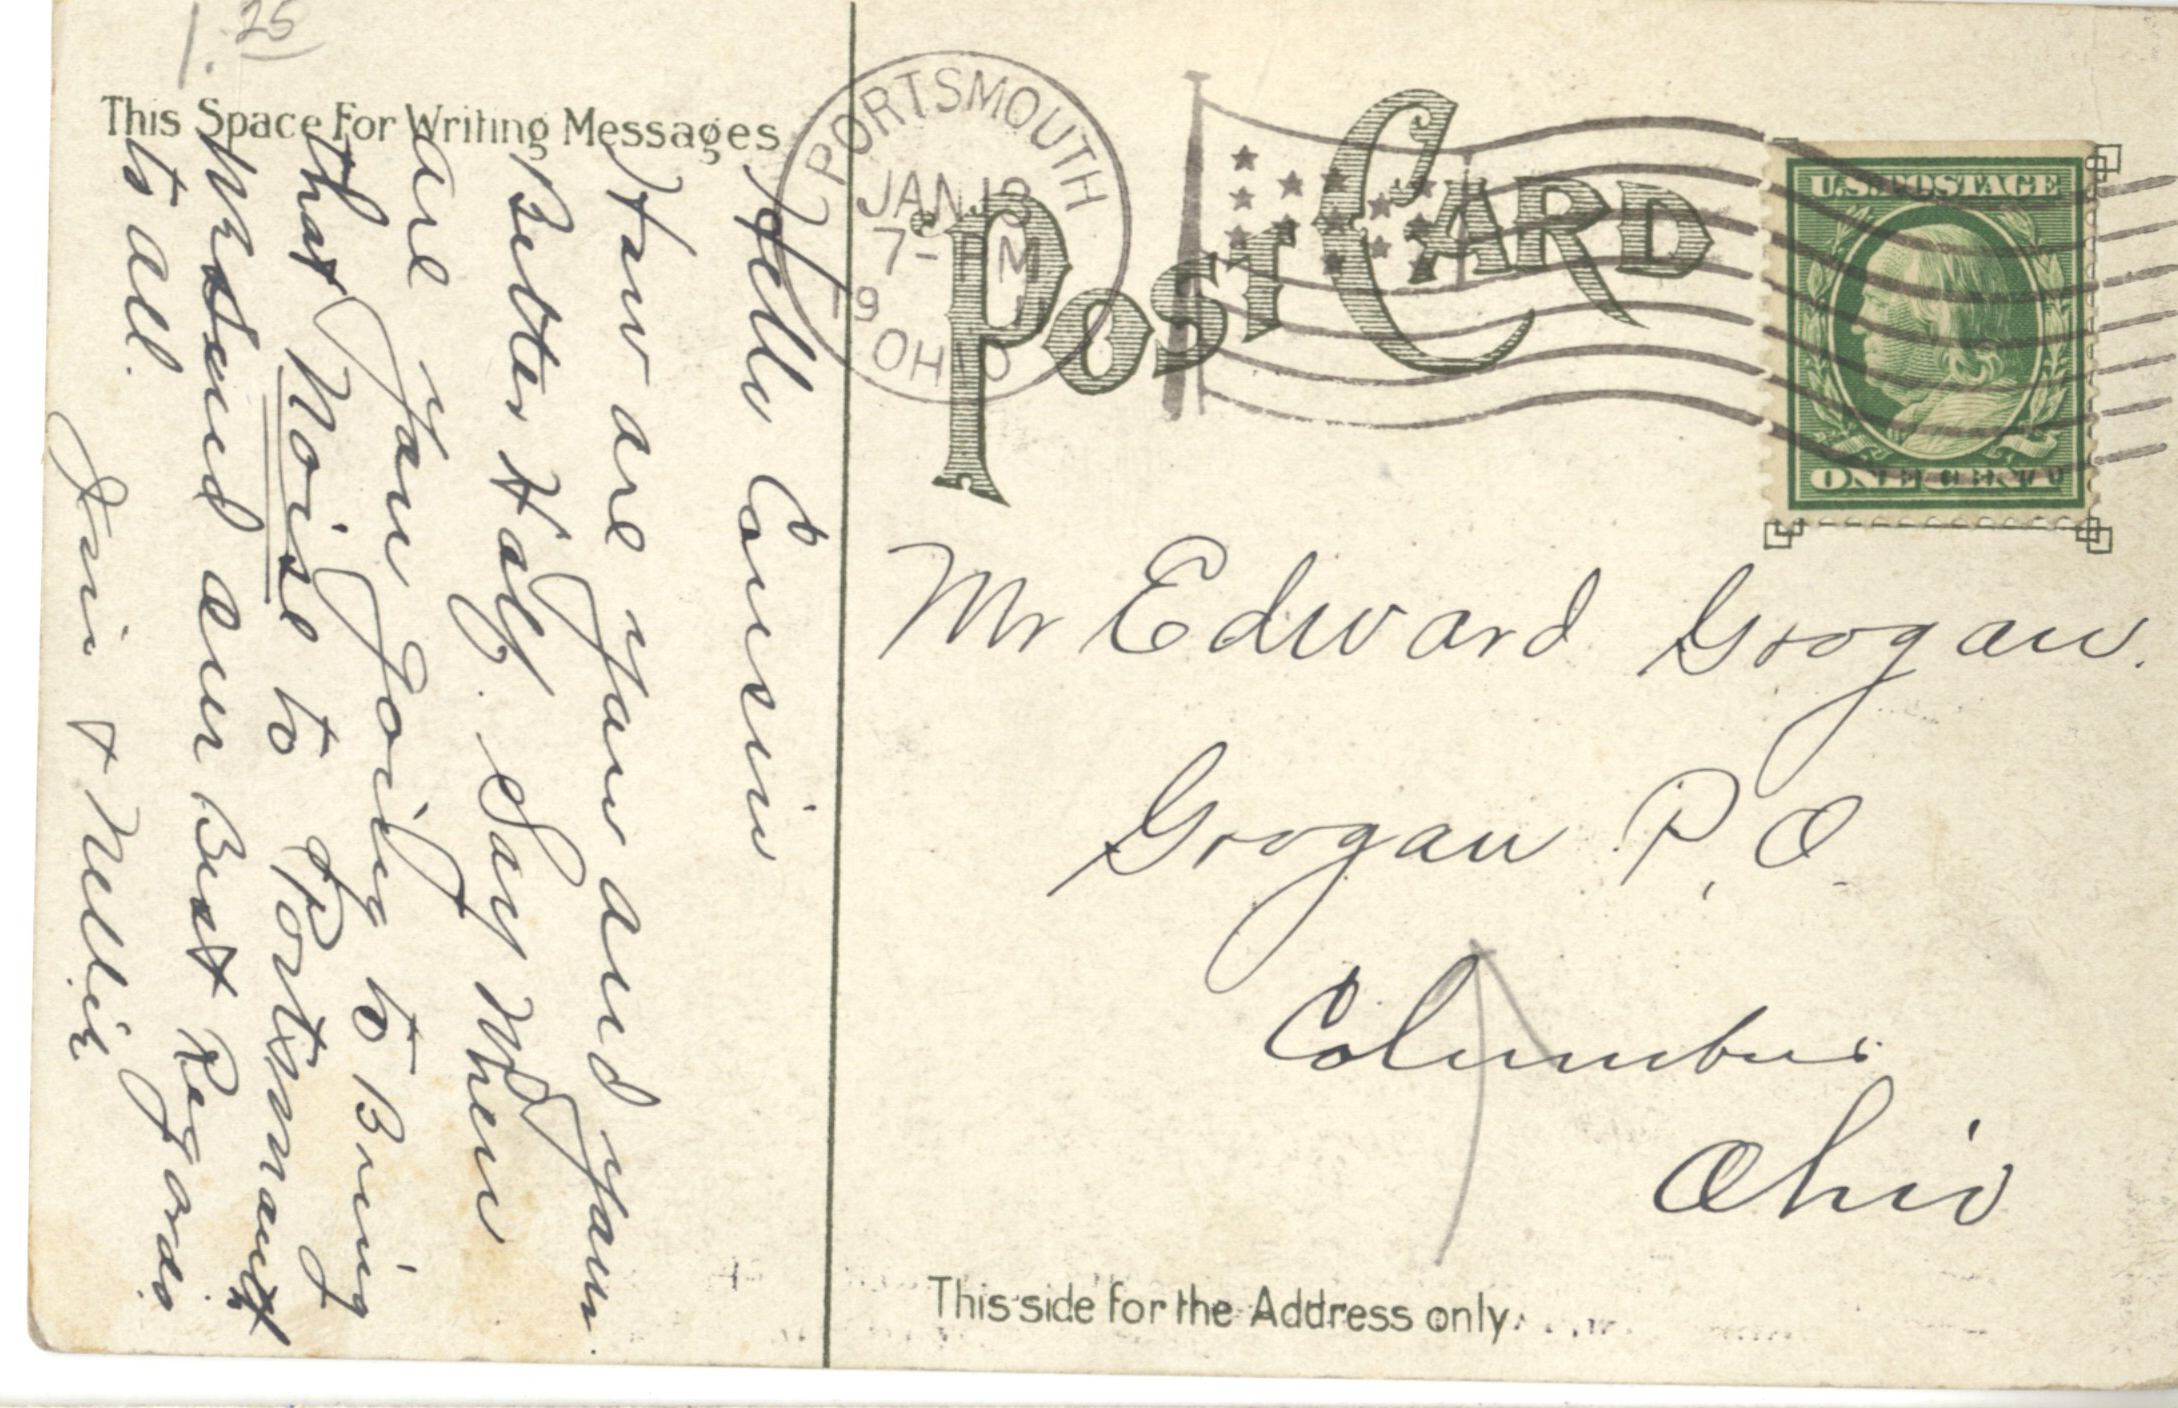 1.25
This Space For Writing Messages
Hello Cousin
How are you and your
Better Half. Say When
are you going to Bring
that Noise to Portsmouth
We Send our Best Regards
to all.
Jim & Nellie
PORTSMOUTH
JAN 13
7- M
19
OHIO
POST CARD
U.S. POSTAGE
ONE CENT
Mr Edward Grogan.
Grogan P.O.
Columbus
Ohio
This side for the Address only.